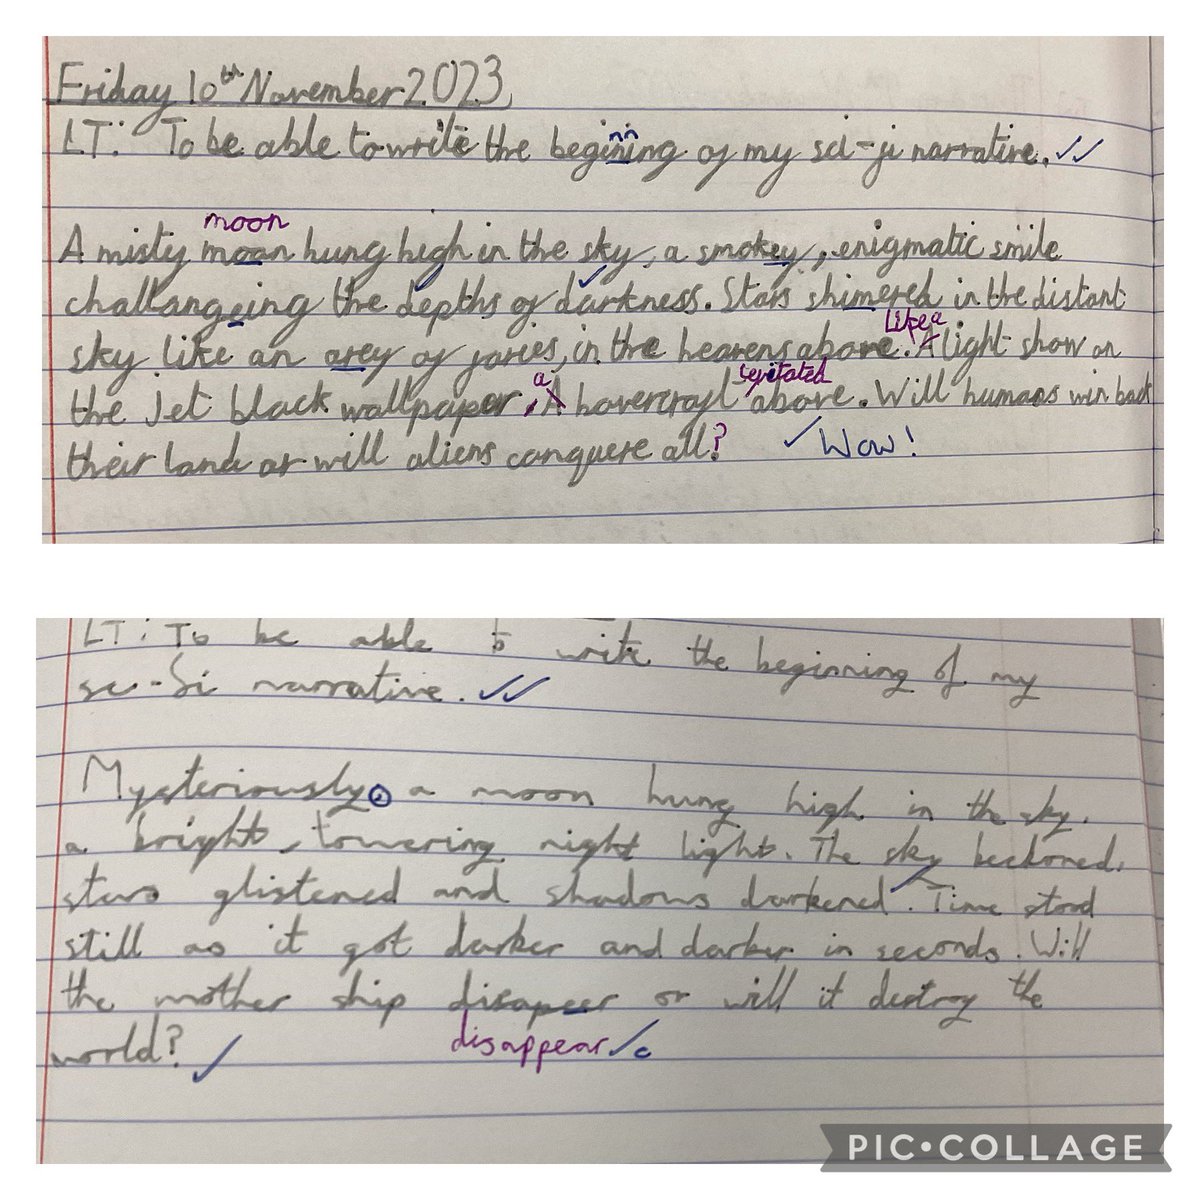 Friday 10th November 2023
LT: To be able to write the begining of my sci-fi narrative.
nn
moon
A misty moan hung high in the sky, a smokey, enigmatic smile
challangeing the depths of darkness. Stars shimered in the distant
Like a
sky like an arey of faries, in the heavens above. A light show on
a
the Jet black wallpaper. A hovercraft above. Will humans win back
their land or will aliens conquere all? Wow!
LT: To be able to write the beginning of my
sc-Si narrative.
Mysteriously, a moon hung high in the sky.
a bright, towering night light. The sky beckoned,
stars glistened and shadows darkened. Time stood
still as it got darker and darker in seconds. Will
the mother ship disapeer or will it destroy the
world?
disappear
c
PIC•COLLAGE